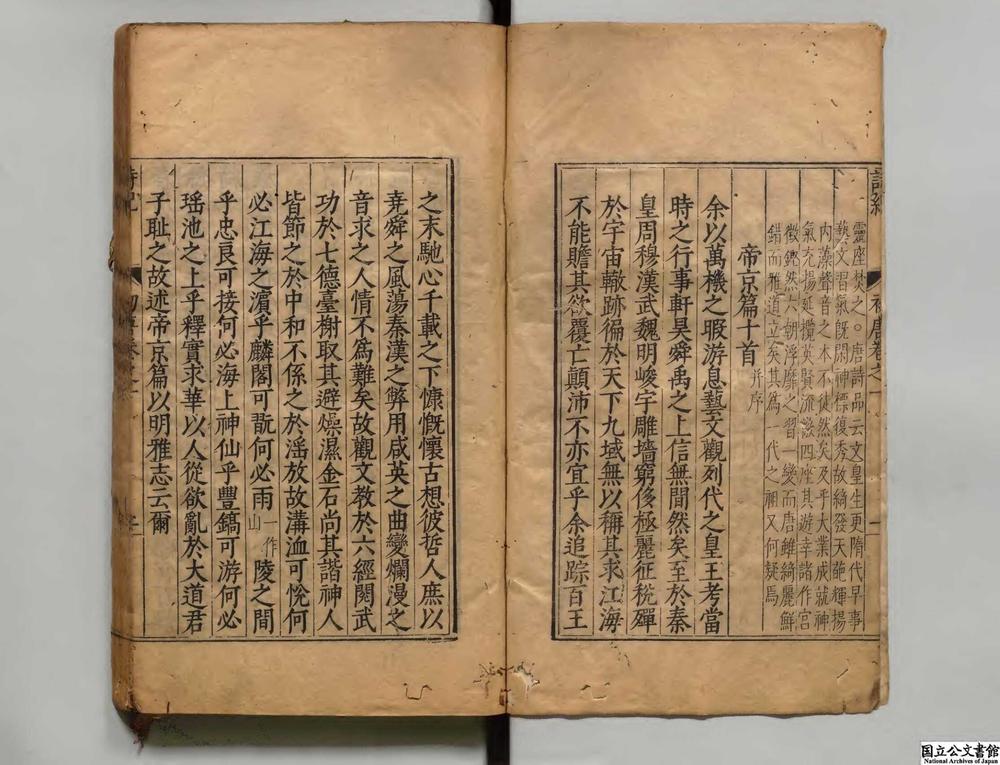 靈座焚之。唐詩品云文皇生更隋代早事
藝文習氣既閑神標復秀故綺發天葩輝揚
内藻聲音之本不徒然矣及乎大業成就神
氣充揚延攬英賢流激四座其游幸諸作宫
徵鏗然六朝浮靡之習一變而唐雖綺麗鮮
錯而雅道立矣其為一代之祖又何疑焉
帝京篇十首并序
余以萬機之暇游息藝文觀列代之皇王考當
時之行事軒昊舜禹之上信無間然矣至於秦
皇周穆漢武魏明峻宇雕墻窮侈極麗征稅殫
於宇宙轍跡徧於天下九域無以稱其求江海
不能贍其欲覆亡顛沛不亦宜乎余追踪百王
之末馳心千載之下慷慨懷古想彼哲人庶以
堯舜之風蕩秦漢之弊用咸英之曲變爛漫之
音求之人情不爲難矣故觀文教於六經閱武
功於七德臺榭取其避燥濕金石尚其諧神人
皆節之於中和不係之於滛放故溝洫可悅何
必江海之濵乎麟閣可翫何必兩一作山陵之間
乎忠良可接何必海上神仙乎豐鎬可游何必
瑶池之上乎釋實求華以人從欲亂於大道君
子耻之故述帝京篇以明雅志云爾
国立公文書館
National Archives of Japan